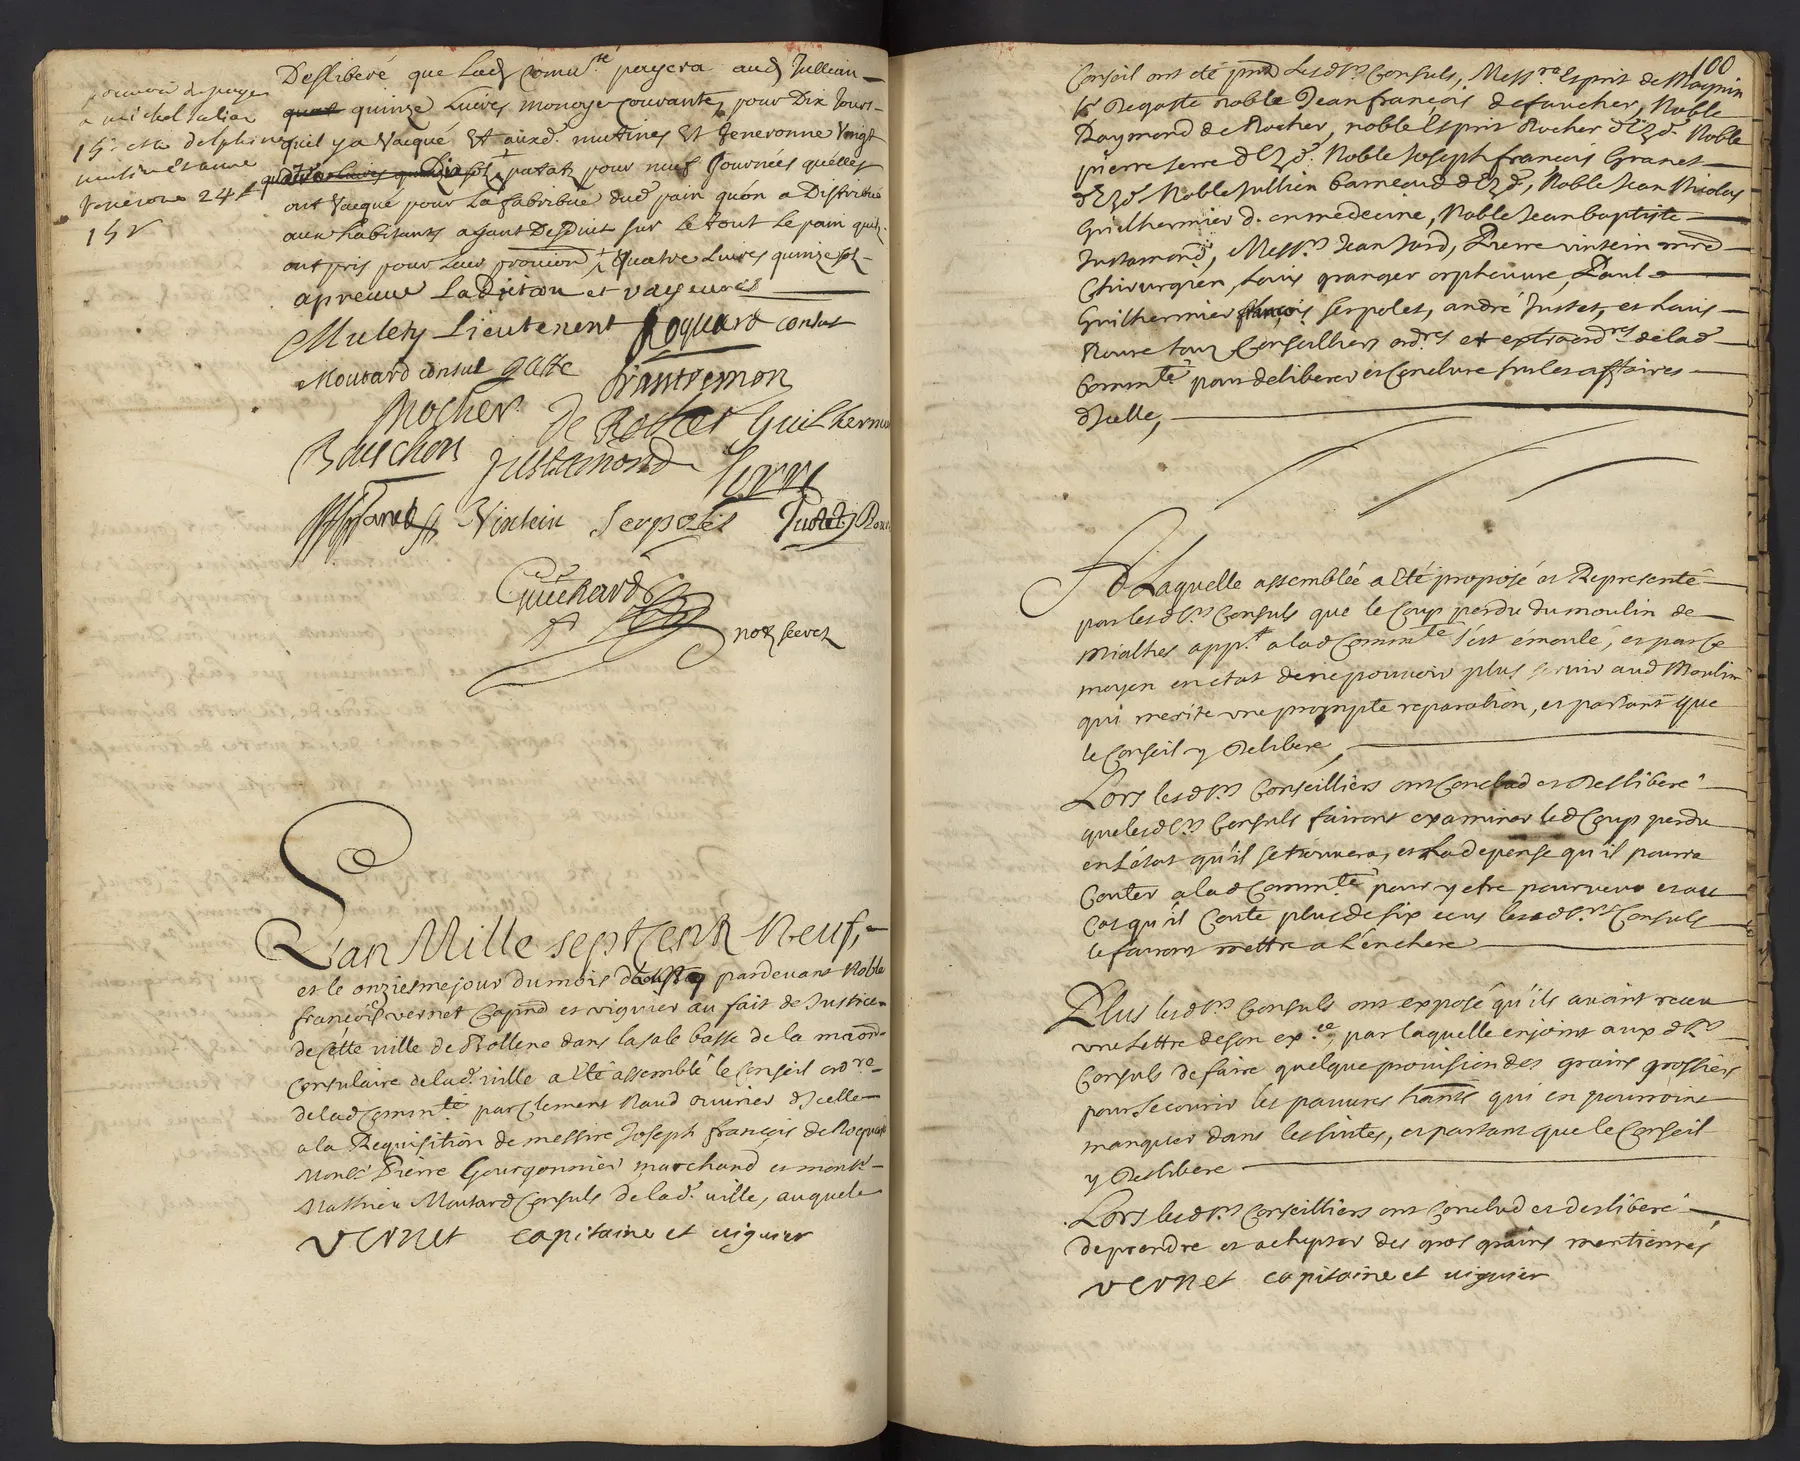 pouvoir de payer
a michel Julian
15ᵗ et a delphine
mutine et anne
Jenerone 24ᵗ
15ˢ
Deslibéré que Lad. Comu.ᵗᵉ payera aud. Jullian
quinze Livres monoye Courante, pour Dix Jours
quil y a Vacqué Et auxd. mutines Et Jeneronne Vingt
pour neuf Journées quelles
ont Vacqué pour La fabrique dud. pain quon a Distribué
aux habitants ayant Desduit sur Le tout Le pain quil.
ont pris pour Leur provision Quatre Livres quinze sol.
apreuve La Dition et rayeures
Mulety Lieutenent Roquard consul
Moutard consul gaste Frantremon
Rocher de Rocher Guilhermi
Bauchon Justamond Serre
Vintein Serpolet Justet Rou
Guichard
not. secret.
Lan Mille sept Cents Neuf,
et le onziesme jour du mois d'aoust pardevant Noble
françois vernet Cap.nᵉ et viguier au fait de Justice
de Cette ville de Bollene dans la sale basse de la maison
Consulaire de lad. ville a Eté assemblé le Conseil ord.re
de lad. Comm.té par Clement Naud ouvrier d'Icelle
a la Requisition de messire Joseph françois de Roquard
Mons.r Pierre Gourgonnier marchand et mons.r
Mathieu Moutard Consuls de lad. ville, auquel
vernet capitaine et viguier
100
Conseil ont été pnts Lesd. s.rs Consuls, Mess.re Esprit de Magnin
s.r de Gaste noble Jean françois de faucher, Noble
Raymond de Rocher, noble Esprit Rocher d. Ez d. Noble
pierre serre d. Ez d. Noble Joseph françois Granet
d. Ez d. Noble Jullien Barneoud d. Ez d., Noble Jean Nicolas
Guilhermier d. en medecine, Noble Jean baptiste
Justamond, Mess.rs Jean Jard, Pierre vintein mre
Chirurgien, Louis granger orpheuvre, Paul
Guilhermier françois Serpolet, andré Justet, et Louis
Roure tous Conseilliers ord.res et extraord.res de lad.
Comm.té pour deliberer et Conclure sur les affaires
d'Icelle,
A Laquelle assemblée a Eté proposé et Representé
par lesd. s.rs Consuls que le Coup perdu du moulin de
mialhes app.t a lad. Comm.té s'est émoulé, et par ce
moyen en etat de ne pouvoir plus servir aud. Moulin
qui merite une prompte reparation, et partant que
le Conseil y Delibere,
Lors lesd. s.rs Conseilliers ont Conclud et Deslibere
que lesd. s.rs Consuls fairont examiner led. Coup perdu
en L'état qu'il se trouvera, et La depense qu'il pourra
Couter a lad. Comm.té pour y etre pourveu et au
Cas qu'il Coute plus de six ecus lesd. s.rs Consuls
le fairont mettre a L'enchere
Plus lesd. s.rs Consuls ont exposé qu'ils avaint receu
une Lettre de son ex.ce, par laquelle enjoint aux d. s.rs
Consuls de faire quelque provision des grains grossiers
pour secourir les pauvres hants qui en pourroint
manquer dans les suites, et partant que le Conseil
y Deslibere
Lors lesd. s.rs Conseilliers ont Conclud et deslibere
de prendre et achepter des gros grains mentionnés
vernet capitaine et viguier